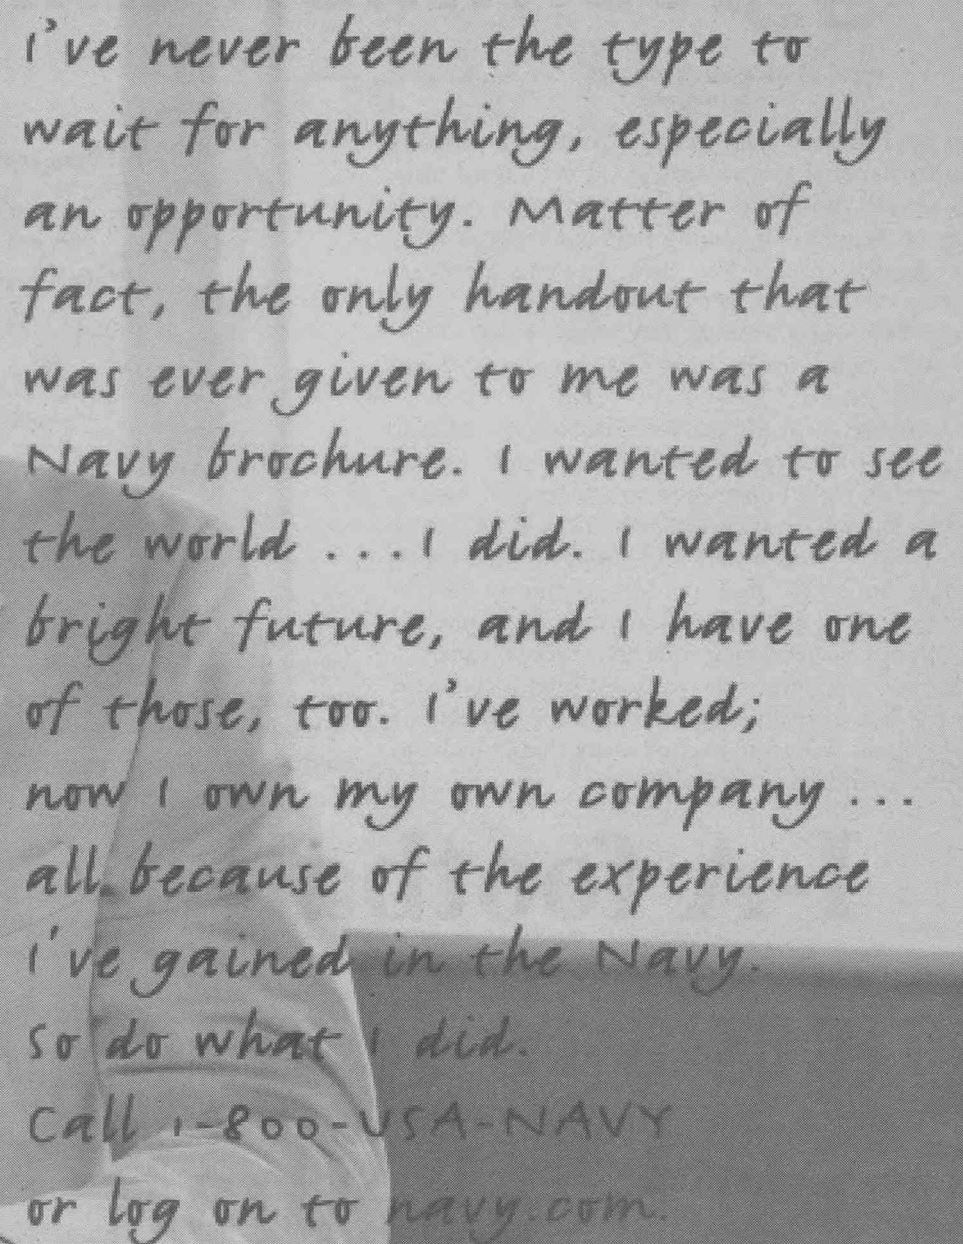 I've never been the type to
wait for anything, especially
an opportunity. Matter of
fact, the only handout that
was ever given to me was a
Navy brochure. I wanted to see
the world ...I did. I wanted a
bright future, and I have one
of those, too. I've worked;
now I own my own company ...
all because of the experience
I've gained in the Navy.
So do what I did.
Call 1-800-USA-NAVY
or log on to navy.com.